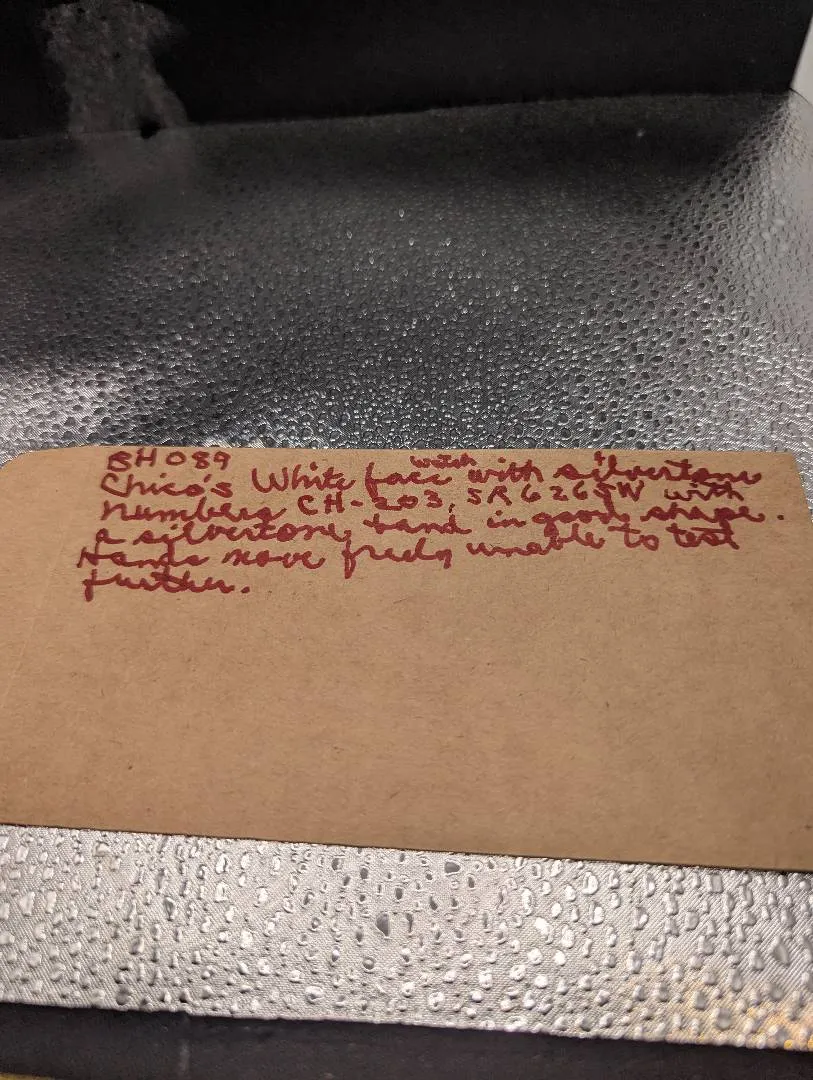 BH089
Chico's White face watch with silvertone
numbers CH-203, SR626SW with
a silvertone band in good shape.
Hands move freely unable to test
further.